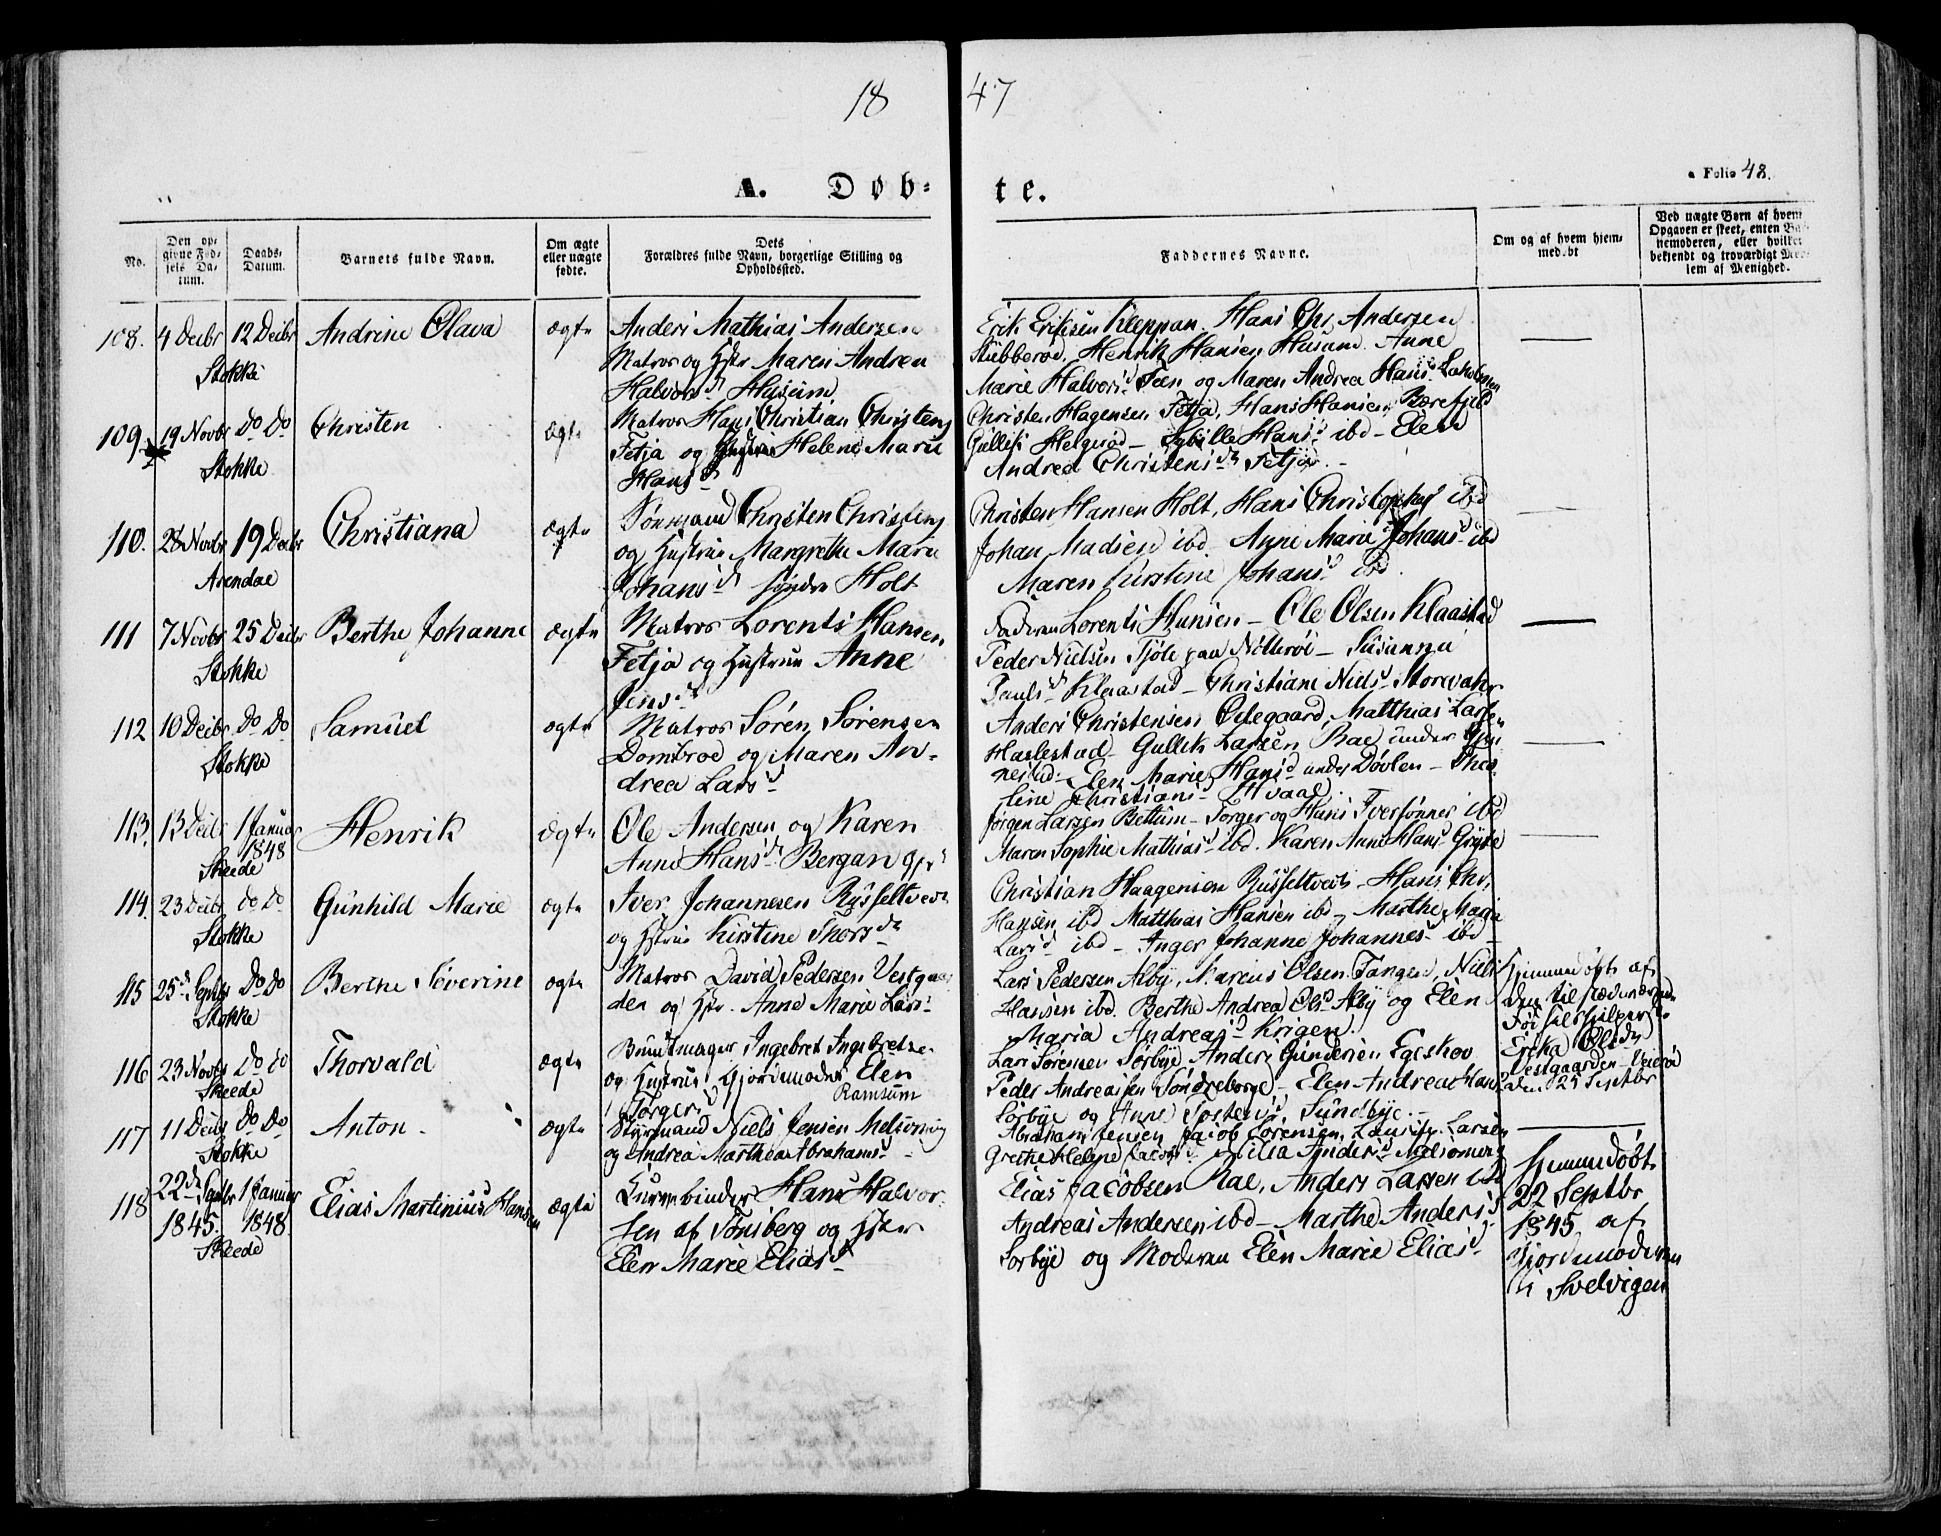 18 47
A. Døb- te.
Folio 48.
No.
Den op-
givne Fød-
sels Da-
tum.
Daabs-
Datum.
Barnets fulde Navn.
Om ægte
eller uægte
fødte.
Dets
Forældres fulde Navn, borgerlige Stilling og
Opholdssted.
Faddernes Navne.
Om og af hvem hjem-
medøbt
Ved uægte Børn af hvem
Opgaven er skeet, enten Bar-
nemoderen, eller hvilket
bekjendt og troværdigt Med-
lem af Menighed.
108. 4 Decbr 12 Decbr Andrine Olava ægte
Stokke
Anders Mathias Andersen
Matros og Hstr Maren Andrea
Halvorsd Husum
Erik Eriksen Kleppan. Hans Chr. Andersen
Stubberød, Henrik Hansen Husum. Anne
Marie Halvorsd Feen og Maren Andrea Hansd
109. 19 Novbr Do Do Christen ægte
Stokke
Matros Hans Christian Christens
Fetja og Hustrue Helene Marie
Hansd
Christen Hagensen Fetja, Hans Hansen
Gulleks Helgerød - Sybille Hansd ibd - Elen
Andrea Christensd Fetja.
110. 28 Novbr 19 Decbr Christiana ægte
Arendal
Christen Christens
og Hustrue Margrethe Marie
Johansd søndre Holt
Christen Hansen Holt, Hans Christophs ibd
Johan Madsen ibd. Anne Marie Johansd ibd
Maren Kirstine Johansd ibd.
111 7 Novbr 25 Decbr Berthe Johanne ægte
Stokke
Matros Lorents Hansen
Fetja og Hustrue Anne
Jensd
Faderen Lorents Hansen - Ole Olsen Klaastad
Peder Nielsen Tjøle paa Nøtterøe - Susanna
Paulsd Klaastad - Christiane Nielsd
112 10 Decbr Do Do Samuel ægte
Stokke
Matros Søren Sørensen
Dombrod og Maren An-
drea Larsd
Anders Christensen Ødegaard Matthias Larsen
Haslestad Gullek Larsen Rae under
Elen Marie Hansd under Døvlen - Theo-
line Christiansd Hvaal.
113. 13 Decbr 1 Januar Henrik ægte
1848
Skeede
Ole Andersen og Karen
Anne Hansd Bergan
Jørgen Larsen Bettum - Torger og Hans Iversønner ibd
Maren Sophie Mathiasd ibd. Karen Anne Hansd
114. 23 Decbr do Do Gunhild Marie ægte
Stokke
Iver Johannesen Rysseltvedt
og Hstrue Kirstine Thorsdr
Christian Haagensen Russeltvedt - Hans Chr.
Hansen ibd Matthias Hansen ibd - Marthe Maja
Larsd ibd - Inger Johanne Johannesd ibd
115 25de Septbr Do Do Berthe Severine ægte
Stokke
Matros David Pedersen Vestgaar-
den og Hstr. Anne Marie Larsd
Lars Pedersen Alby, Marcus Olsen Tangen, Niels
Hansen ibd. Berthe Andrea Olsd Alby og Elen
Maria Andreasd Krigen.
Hjemmedøbt af
den tilstedeværende
Fødselshjelperske
Ericka Olsdr
Vestgaarden Veierød
den 25 Septbr
116 23 Novbr Do do Thorvald ægte
Skeede
Buntmager Ingebret Ingebretse
og Hustrue Gjordemoder Elen
Torgersd Ramsum
Lars Sørensen Sørbye Anders Gundersen Egeskov
Peder Andreassen Søndreborge - Elen Andrea Hansd
Sørbye og Anne Sundbye.
117 11 Decbr Do Do Anton ægte
Stokke
Styrmand Niels Jensen Melsomvig
og Andrea Marthea Abrahamsd
Abraham Jensen Jacob Sørensen, Larsen
Grethe Helene Andersd Melsomvig
118 22de Septbr 1 Januar Elias Martinius Hansen ægte
1845. 1848.
Skeede
Kurvebinder Hans Halvor-
sen af Tønsberg og Hstr
Elen Marie Eliasd
Elias Jacobsen Rae, Anders Larsen ibd
Andreas Andersen ibd - Marthe Andersd
Sørbye og Moderen Elen Marie Eliasd
Hjemmedøbt
22 Septbr
1845 af
Gjordemoderen
i Svelvigen